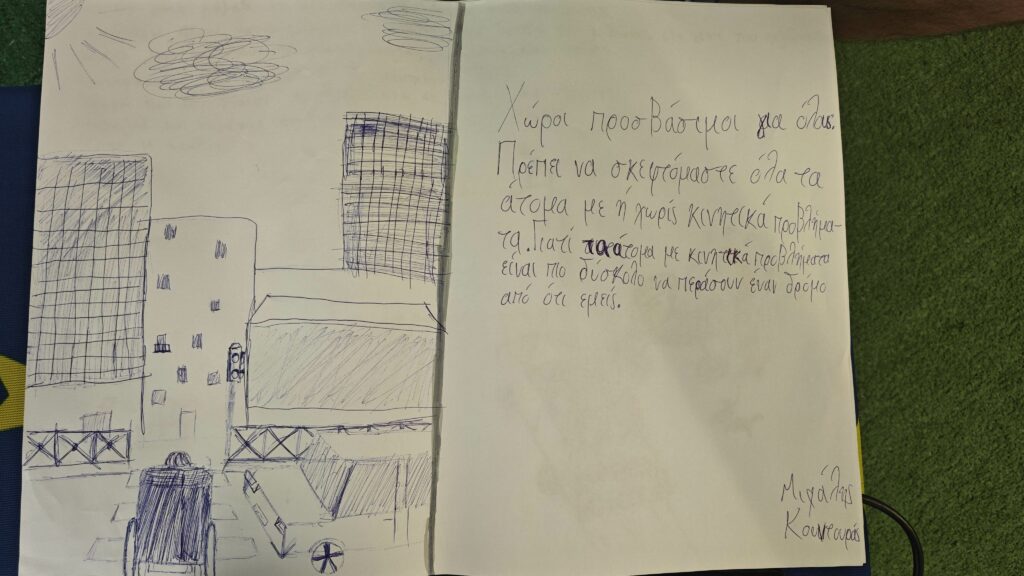 Χώροι προσβάσιμοι για όλους.
Πρέπει να σκεφτόμαστε όλα τα
άτομα με ή χωρίς κινητικά προβλήμα-
τα. Γιατί τα άτομα με κινητικά προβλήματα
είναι πιο δύσκολο να περάσουν έναν δρόμο
από ότι εμείς.
Μιχάλης
Κουντουράς